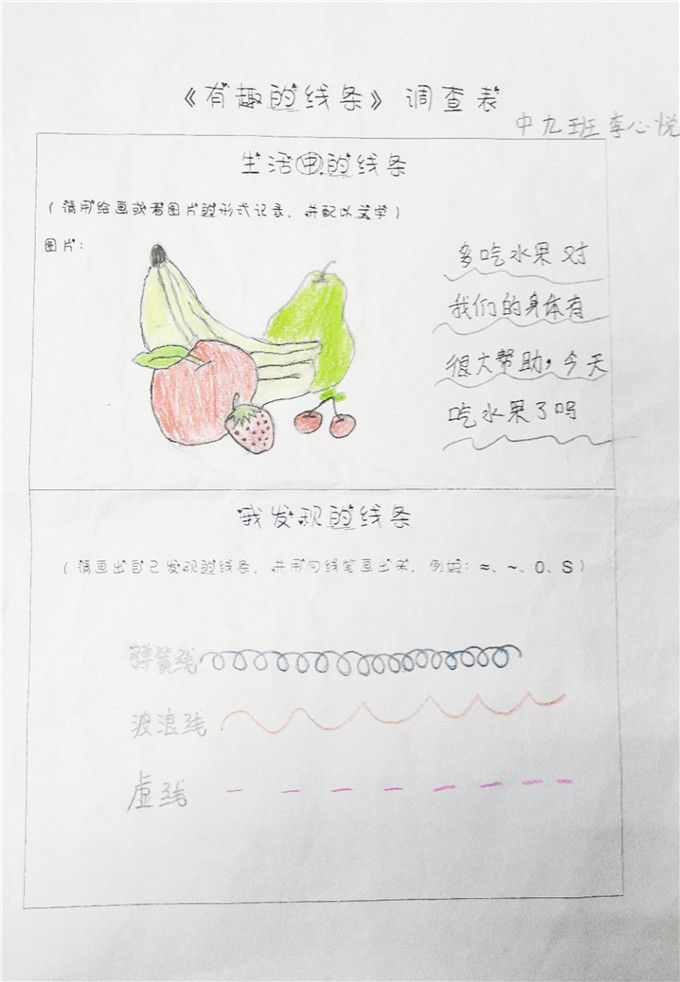 《有趣的线条》调查表
中九班 李心悦
生活中的线条
（请用绘画或者图片的形式记录，并配以文字）
图片：
多吃水果对
我们的身体有
很大帮助，今天
吃水果了吗
我发现的线条
（请画出自己发现的线条，并用勾线笔画出来，例如：≈、~、O、S）
弹簧线
波浪线
虚线